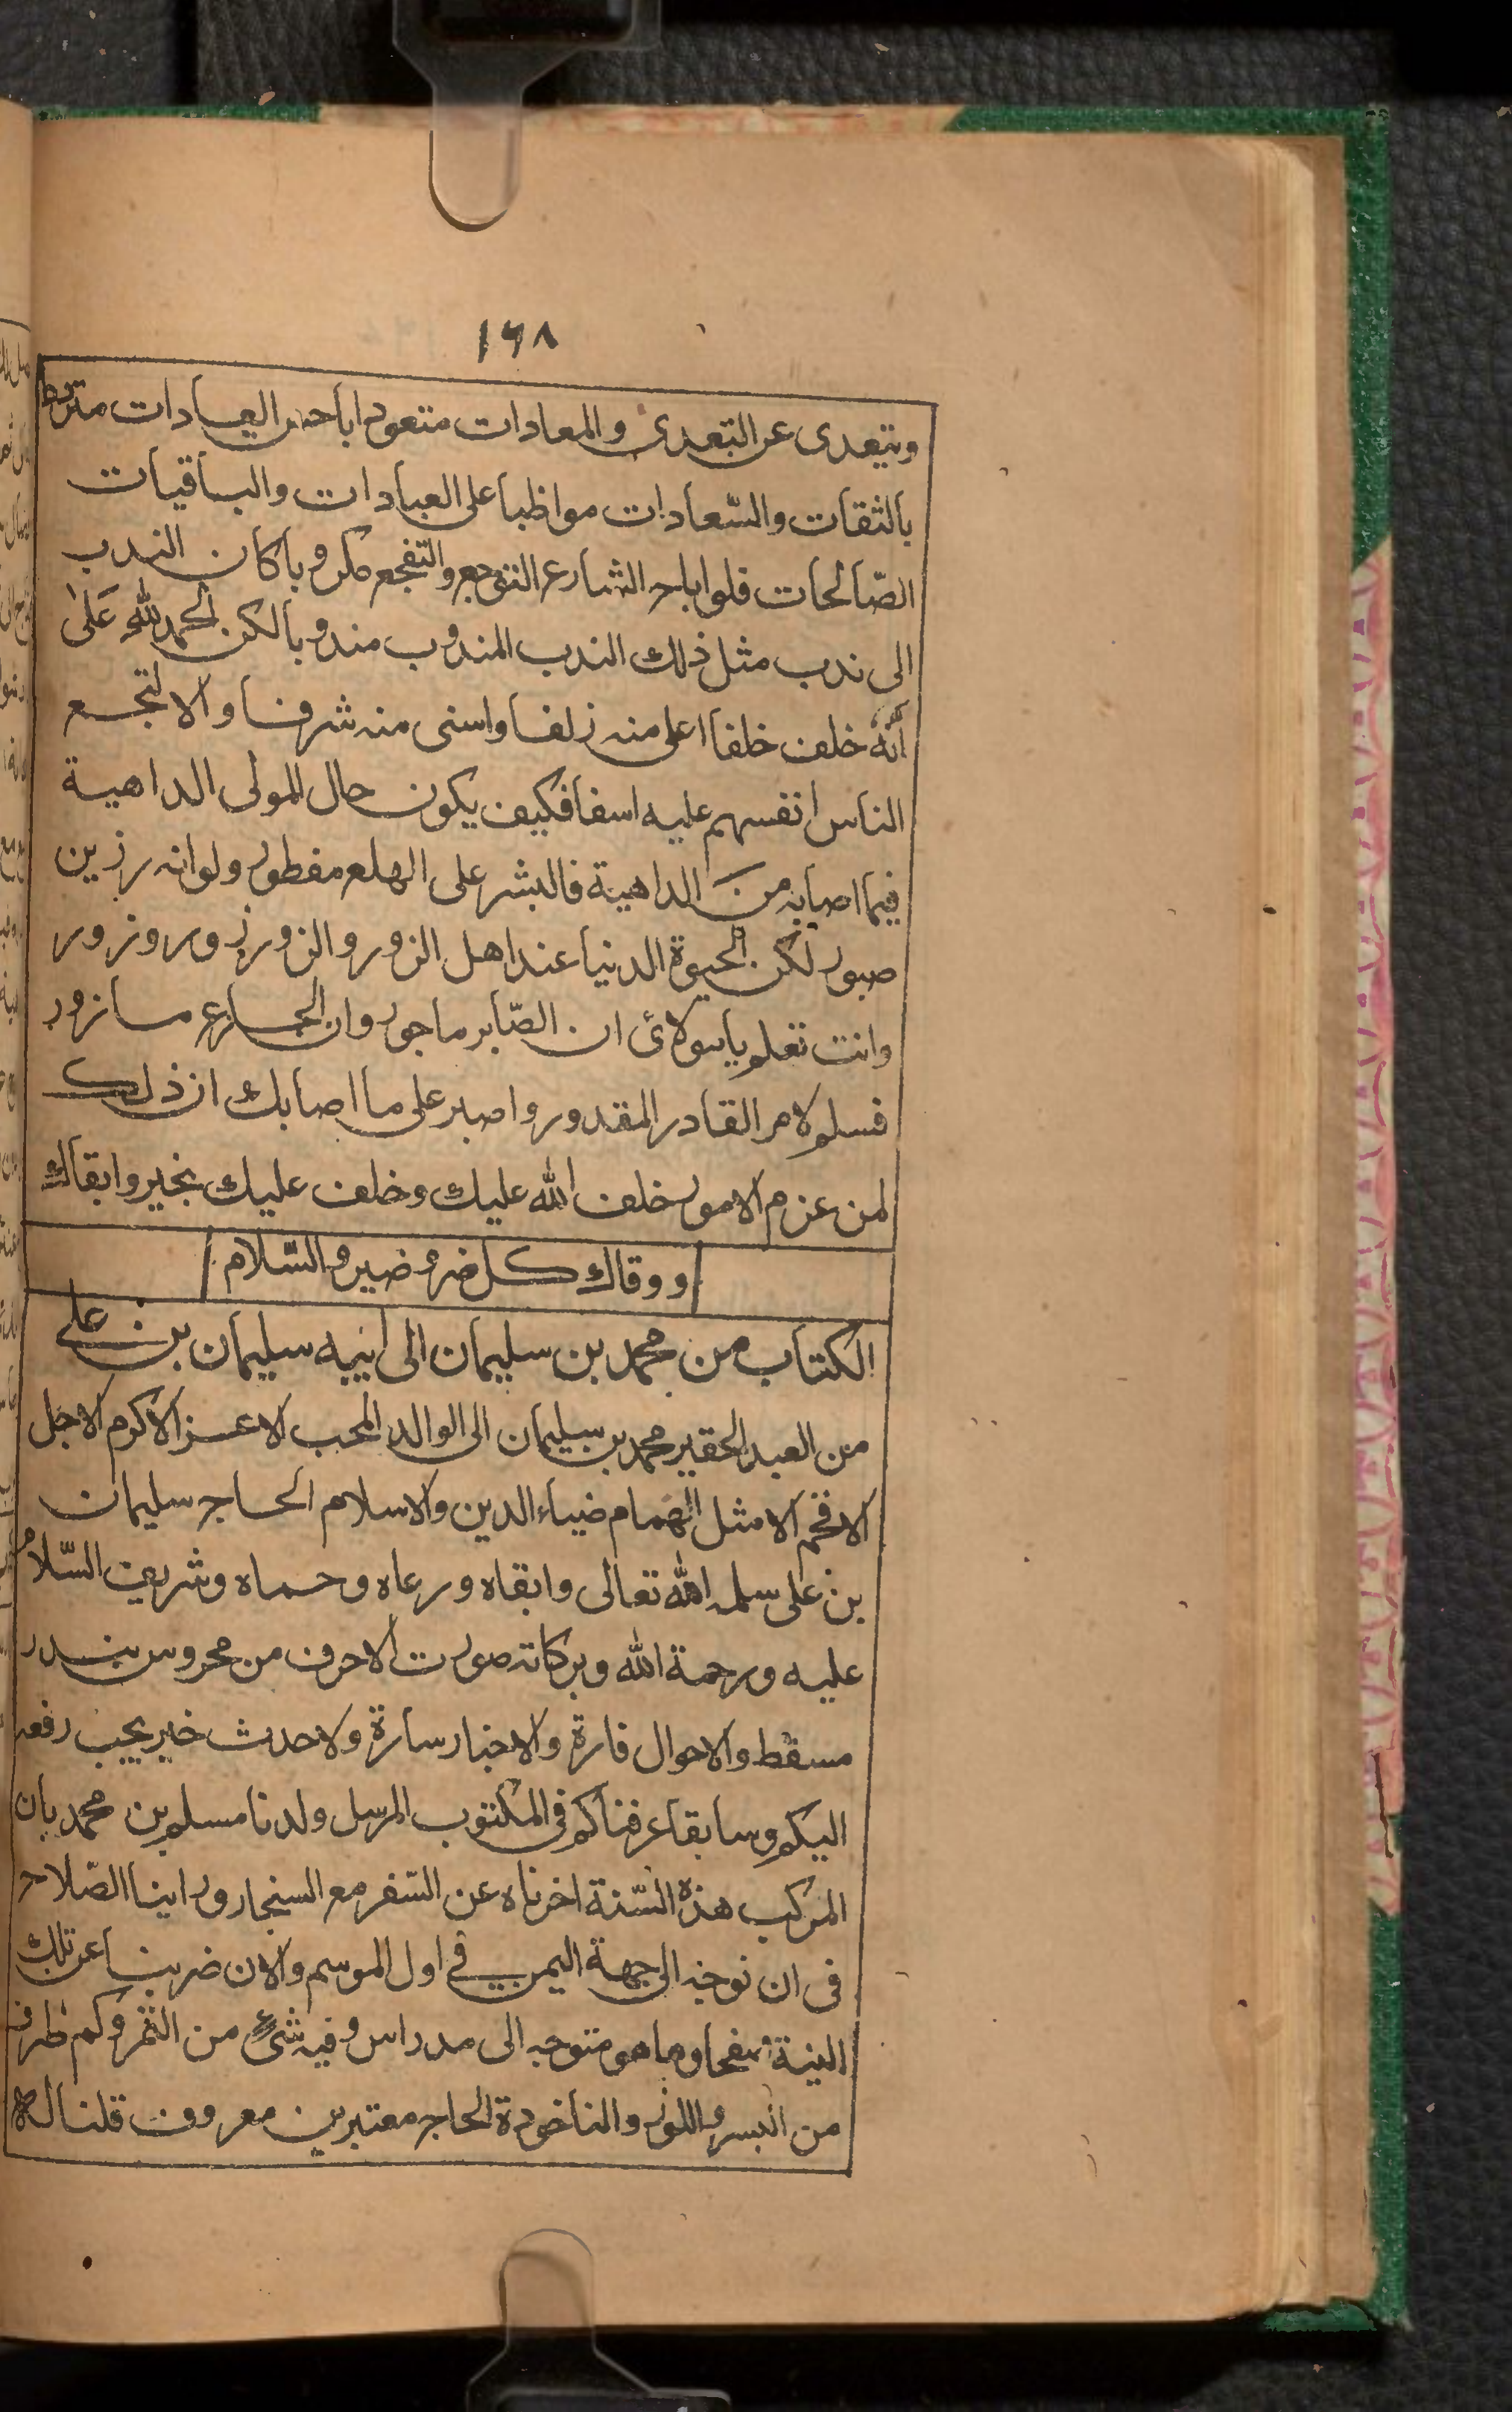 ١٦٨
ويتعدى عن التعدى والمعادات متعودا باحسن العبادات متردد
بالثقات والسّعادات مواظبا على العبادات والباقيات
الصّالحات فلو اباح الشارع التوجع والتفجع مكروبا كان الندب
الى ندب مثل ذلك الندب المندوب مندوبا لكن الحمد لله عَلىٰ
أنّهُ خلف خلفا اعلى منه زلفا واسنى منه شرفا والا لتجع
الناس انفسهم عليه اسفا فكيف يكون حال المولى الداهية
فيما اصابه منَ الداهية فالبشر على الهلع مفطور ولو انه رزين
صبور لكن الحيوة الدنيا عند اهل الزور والزور زور وزور
وانت تعلم يا مولائ ان الصّابر ماجور وان الجازع مازور
فسلم لامر القادر المقدور واصبر على ما اصابك ان ذلك
لمن عزم الامور خلف الله عليك وخلف عليك بخير وابقاك
ووقاك كل ضر وضير والسّلام
الكتاب من محمد بن سليمان الى ابيه سليمان بن على
من العبد الحقير محمد بن سليمان الى الوالد المحب الاعز الاكرم الاجل
الافخم الامثل الهمام ضياء الدين والاسلام الحاج سليمان
بن على سلمه الله تعالى وابقاه ورعاه وحماه وشريف السّلامُ
عليه ورحمة الله وبركاته صورت الاحرف من محروس بندر
مسقط والاحوال قارة والاخبار سارة ولاحدث خير يجب رفعه
اليكم وسابقا عرفناكم فى المكتوب المرسل ولدنا مسلم بن محمد بان
المركب هذه السّنة اخرناه عن السّفر مع السنجار وراينا الصّلاح
فى ان نوجه الى جهة اليمن فى اول الموسم والان ضربنا عن تلك
النية صفحا وها هو متوجه الى مدراس وفيه شئ من التمر وكم ظرف
من البسر واللوز والناخودة الحاج معتبر بن معروف قلنا له